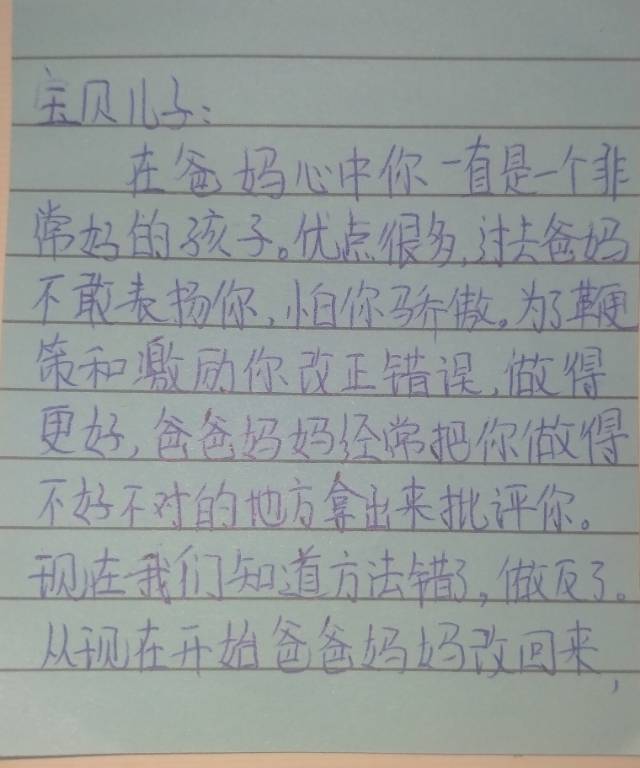 宝贝儿子：
在爸妈心中你一直是一个非
常好的孩子。优点很多，过去爸妈
不敢表扬你，怕你骄傲。为了鞭
策和激励你改正错误，做得
更好，爸爸妈妈经常把你做得
不好不对的地方拿出来批评你。
现在我们知道方法错了，做反了。
从现在开始爸爸妈妈改回来，